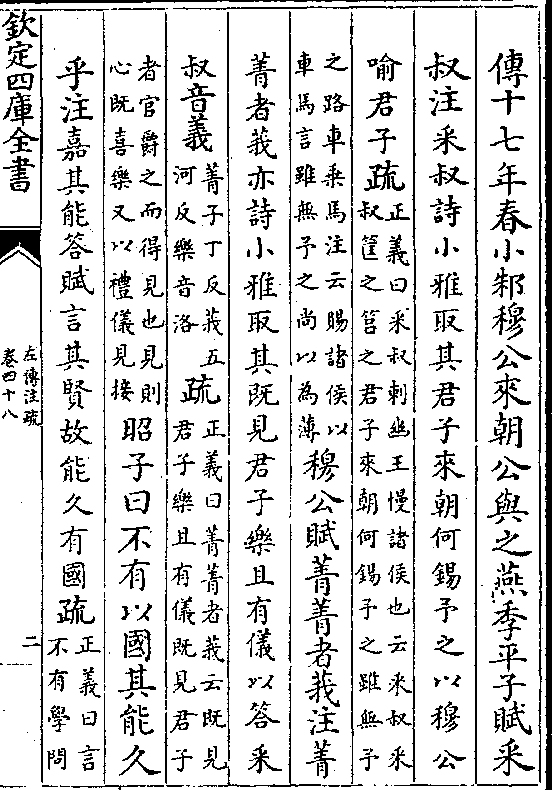 傳十七年春小邾穆公來朝公與之燕季平子賦采
叔注采叔詩小雅取其君子來朝何錫予之以穆公
喻君子疏正義曰采叔刺幽王慢諸侯也云采叔采
叔筐之筥之君子來朝何錫予之雖無予
之路車乘馬注云賜諸侯以
車馬言雖無予之尚以為薄穆公賦菁菁者莪注菁
菁者莪亦詩小雅取其既見君子樂且有儀以答采
叔音義菁子丁反莪五
河反樂音洛疏正義曰菁菁者莪云既見
君子樂且有儀既見君子
者官爵之而得見也見則
心既喜樂又以禮儀見接昭子曰不有以國其能久
乎注嘉其能答賦言其賢故能久有國疏正義曰言
不有學問
欽定四庫全書
左傳注疏
卷四十八
二